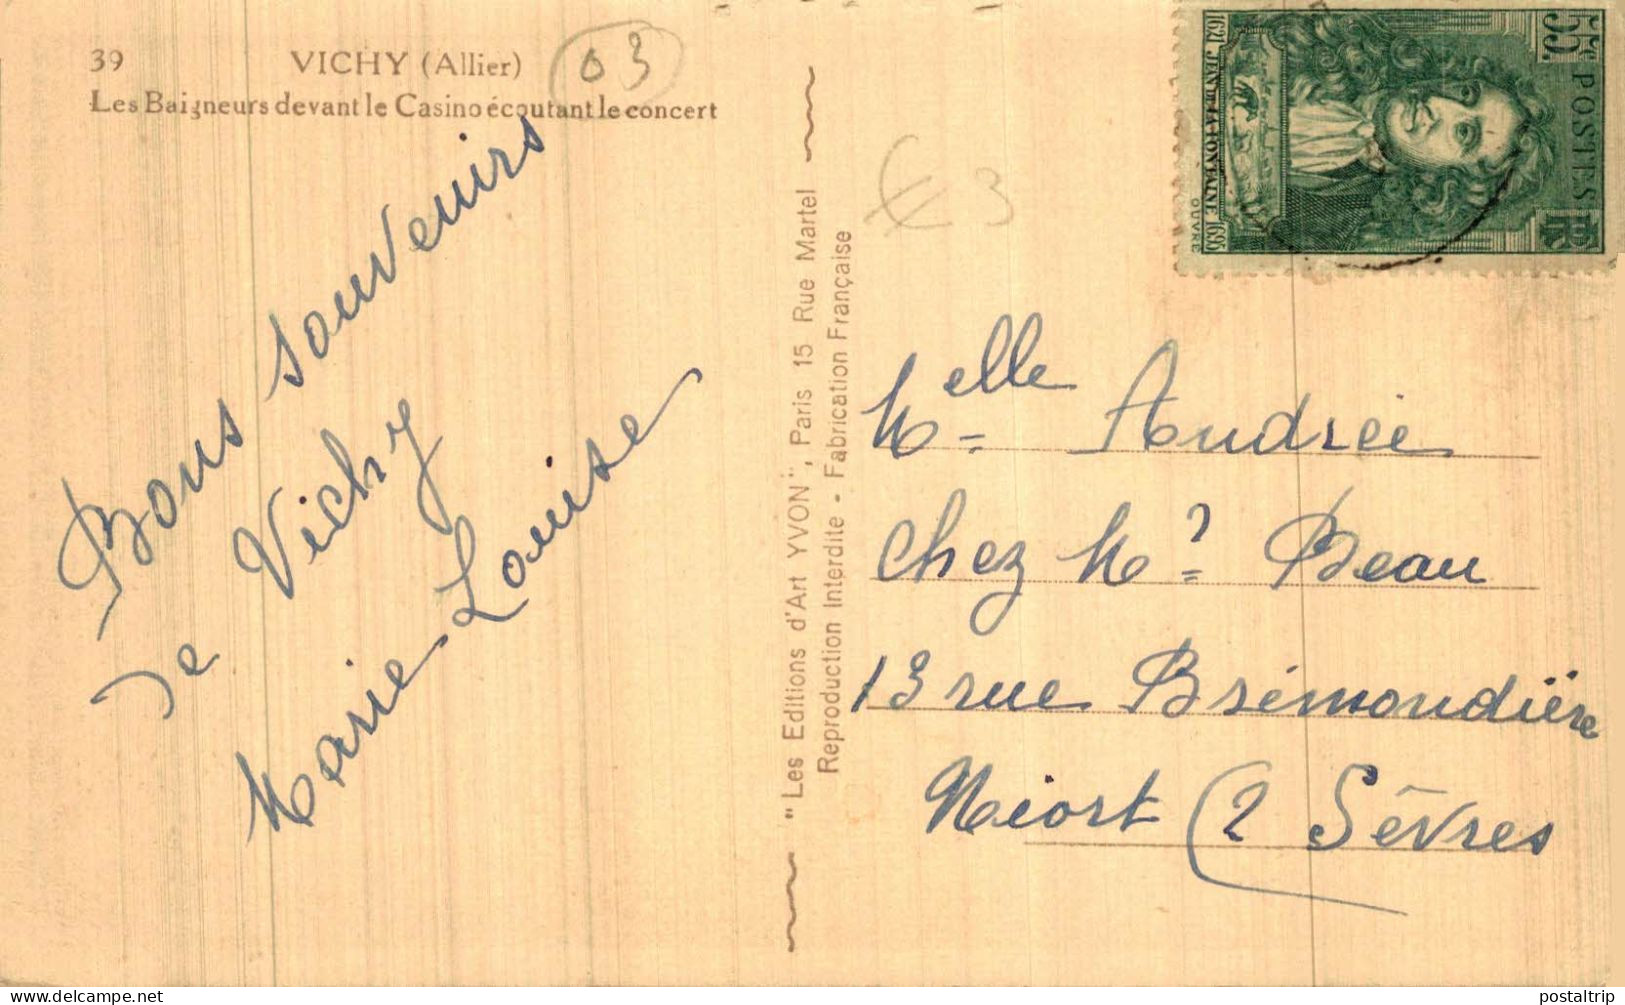 39 VICHY (Allier)
Les Baigneurs devant le Casino écoutant le concert
03
Bons souvenirs
de Vichy
Marie-Louise
"Les Editions d'Art YVON", Paris 15 Rue Martel
Reproduction Interdite - Fabrication Française
€ 3
55c POSTES RF
1621 JEAN DE LA FONTAINE 1695
OUVRÉ
Melle Andrée
chez Mr Beau
13 rue Brémondière
Niort (2 Sèvres
postaltrip